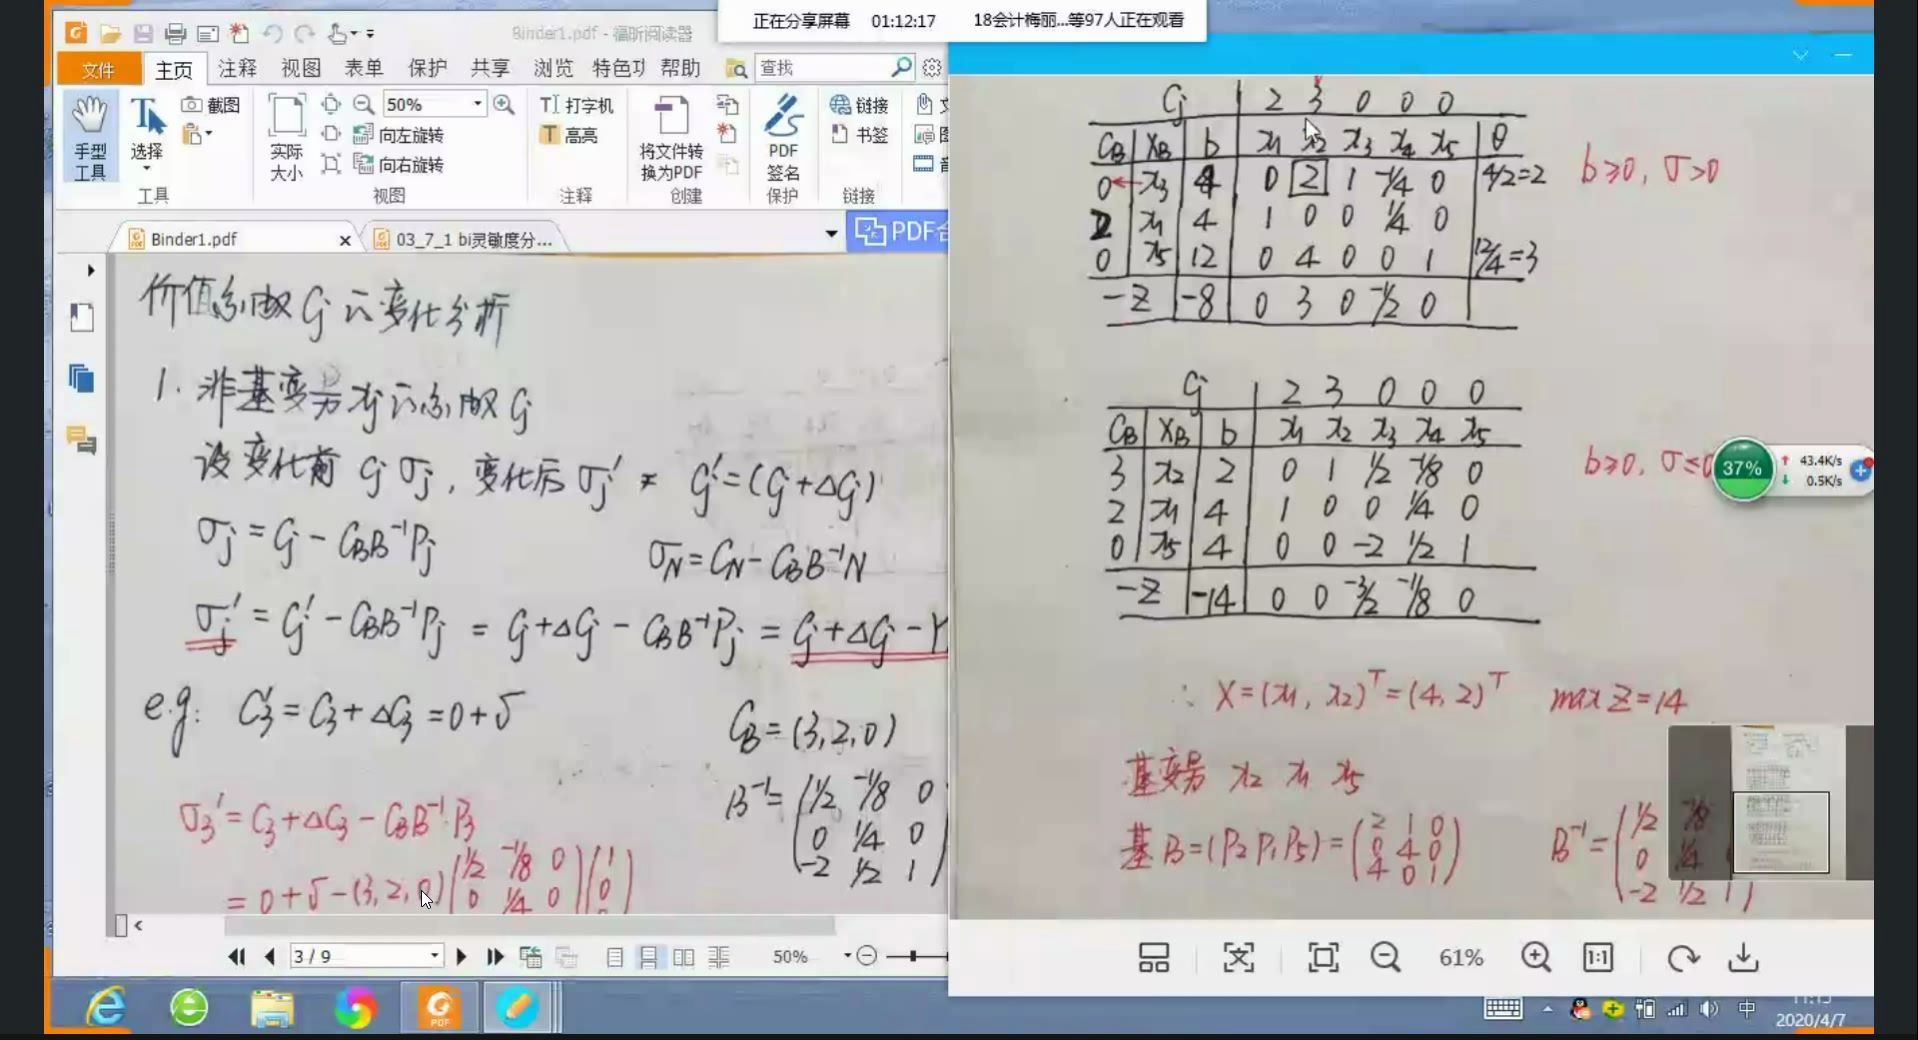 正在分享屏幕 01:12:17 18会计梅丽...等97人正在观看
Binder1.pdf - 福昕阅读器
文件 主页 注释 视图 表单 保护 共享 浏览 特色功 帮助 查找
手型工具 选择 截图
工具
实际大小 50% 向左旋转 向右旋转
视图
打字机 高亮
注释
将文件转换为PDF
创建
PDF签名
保护
链接 书签
链接
Binder1.pdf × 03_7_1 bi灵敏度分...
价值系数 Cj 的变化分析
1. 非基变量 xj 的系数 Cj
设变化前 Cj σj , 变化后 σj' Cj' = (Cj + ΔCj)
σj = Cj - CBB⁻¹Pj
σN = CN - CBB⁻¹N
σj' = Cj' - CBB⁻¹Pj = Cj + ΔCj - CBB⁻¹Pj = Cj + ΔCj - Y
e.g: C3' = C3 + ΔC3 = 0 + 5
CB = (3, 2, 0)
B⁻¹ = (1/2 -1/8 0
0 1/4 0
-2 1/2 1)
σ3' = C3 + ΔC3 - CBB⁻¹P3
= 0 + 5 - (3, 2, 0) (1/2 -1/8 0 (1
0 1/4 0 0
3 / 9 50%
Cj 2 3 0 0 0
CB XB b x1 x2 x3 x4 x5 θ
0 x3 4 0 2 1 -1/4 0 4/2=2
2 x1 4 1 0 0 1/4 0
0 x5 12 0 4 0 0 1 12/4=3
-Z -8 0 3 0 -1/2 0
b≥0, σ>0
Cj 2 3 0 0 0
CB XB b x1 x2 x3 x4 x5
3 x2 2 0 1 1/2 -1/8 0
2 x1 4 1 0 0 1/4 0
0 x5 4 0 0 -2 1/2 1
-Z -14 0 0 -3/2 -1/8 0
b≥0, σ≤0
37% 43.4K/s
0.5K/s
∴ X = (x1, x2)ᵀ = (4, 2)ᵀ max Z = 14
基变量 x2 x1 x5
基 B = (P2 P1 P5) = (2 1 0
0 4 0
4 0 1)
B⁻¹ = (1/2 -1/8
0 1/4
-2 1/2 1)
61% 1:1
中
11:15
2020/4/7